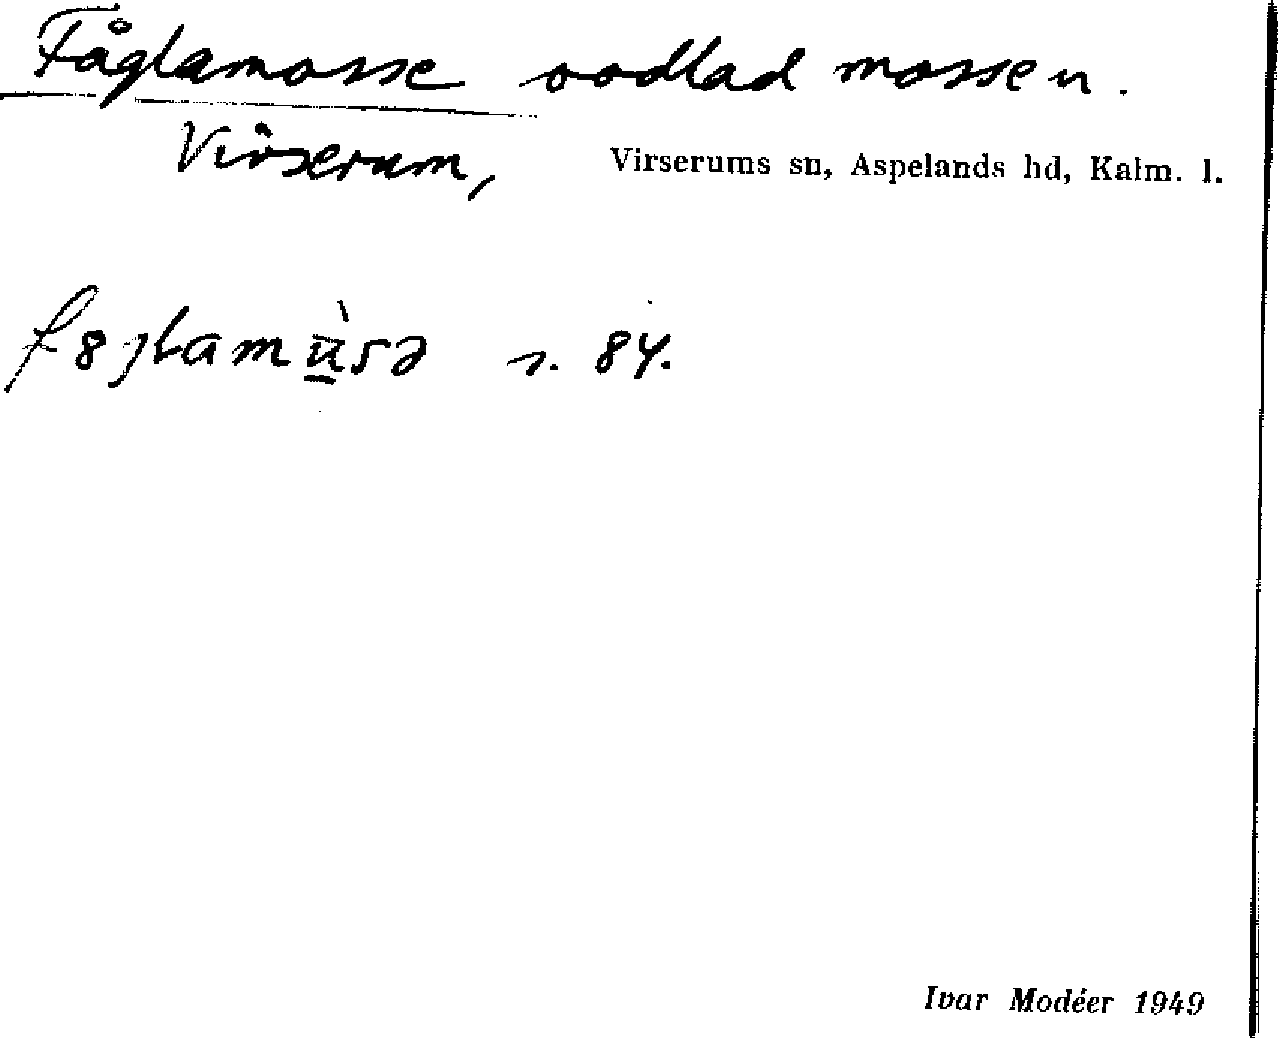 Fåglamosse oodlad mossen.
Virserum, Virserums sn, Aspelands hd, Kalm. l.
s. 84.
Ivar Modéer 1949